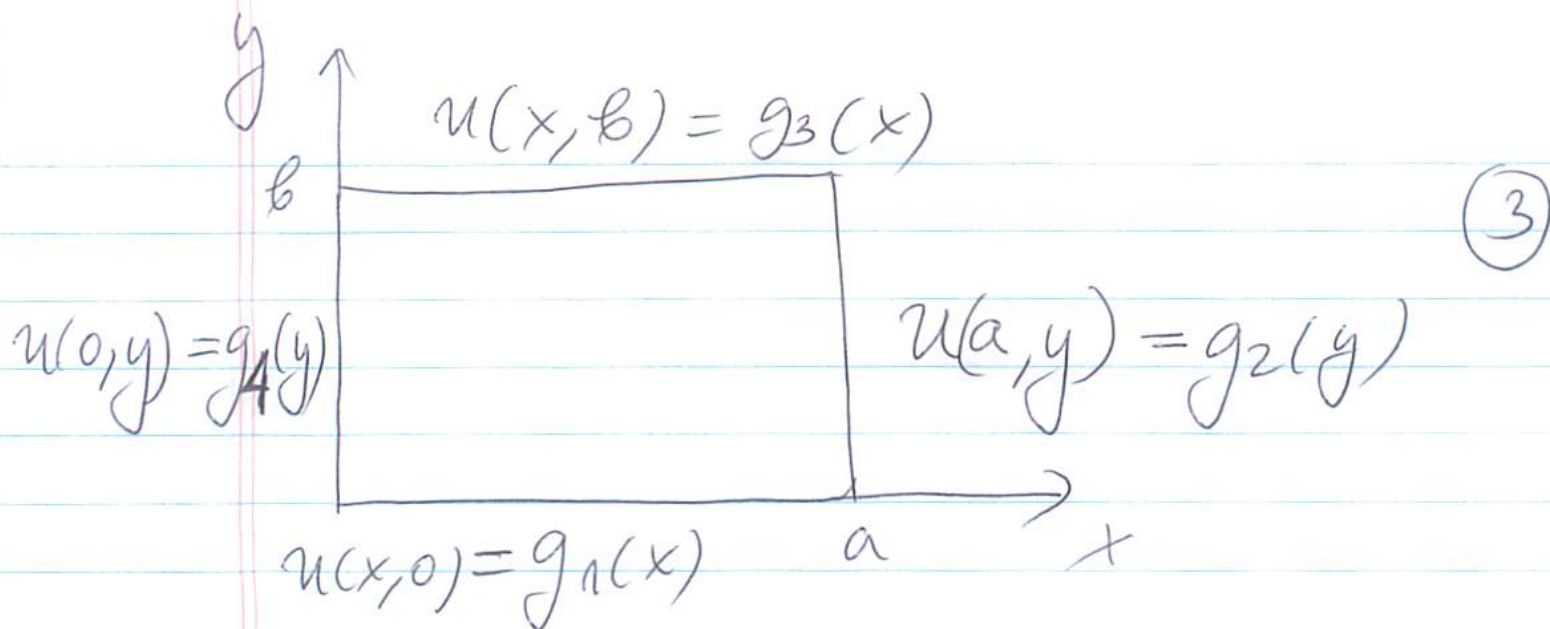 y
u(x, b) = g3(x)
b
3
u(0,y) = g4(y)
u(a, y) = g2(y)
u(x,0) = g1(x)
a
x